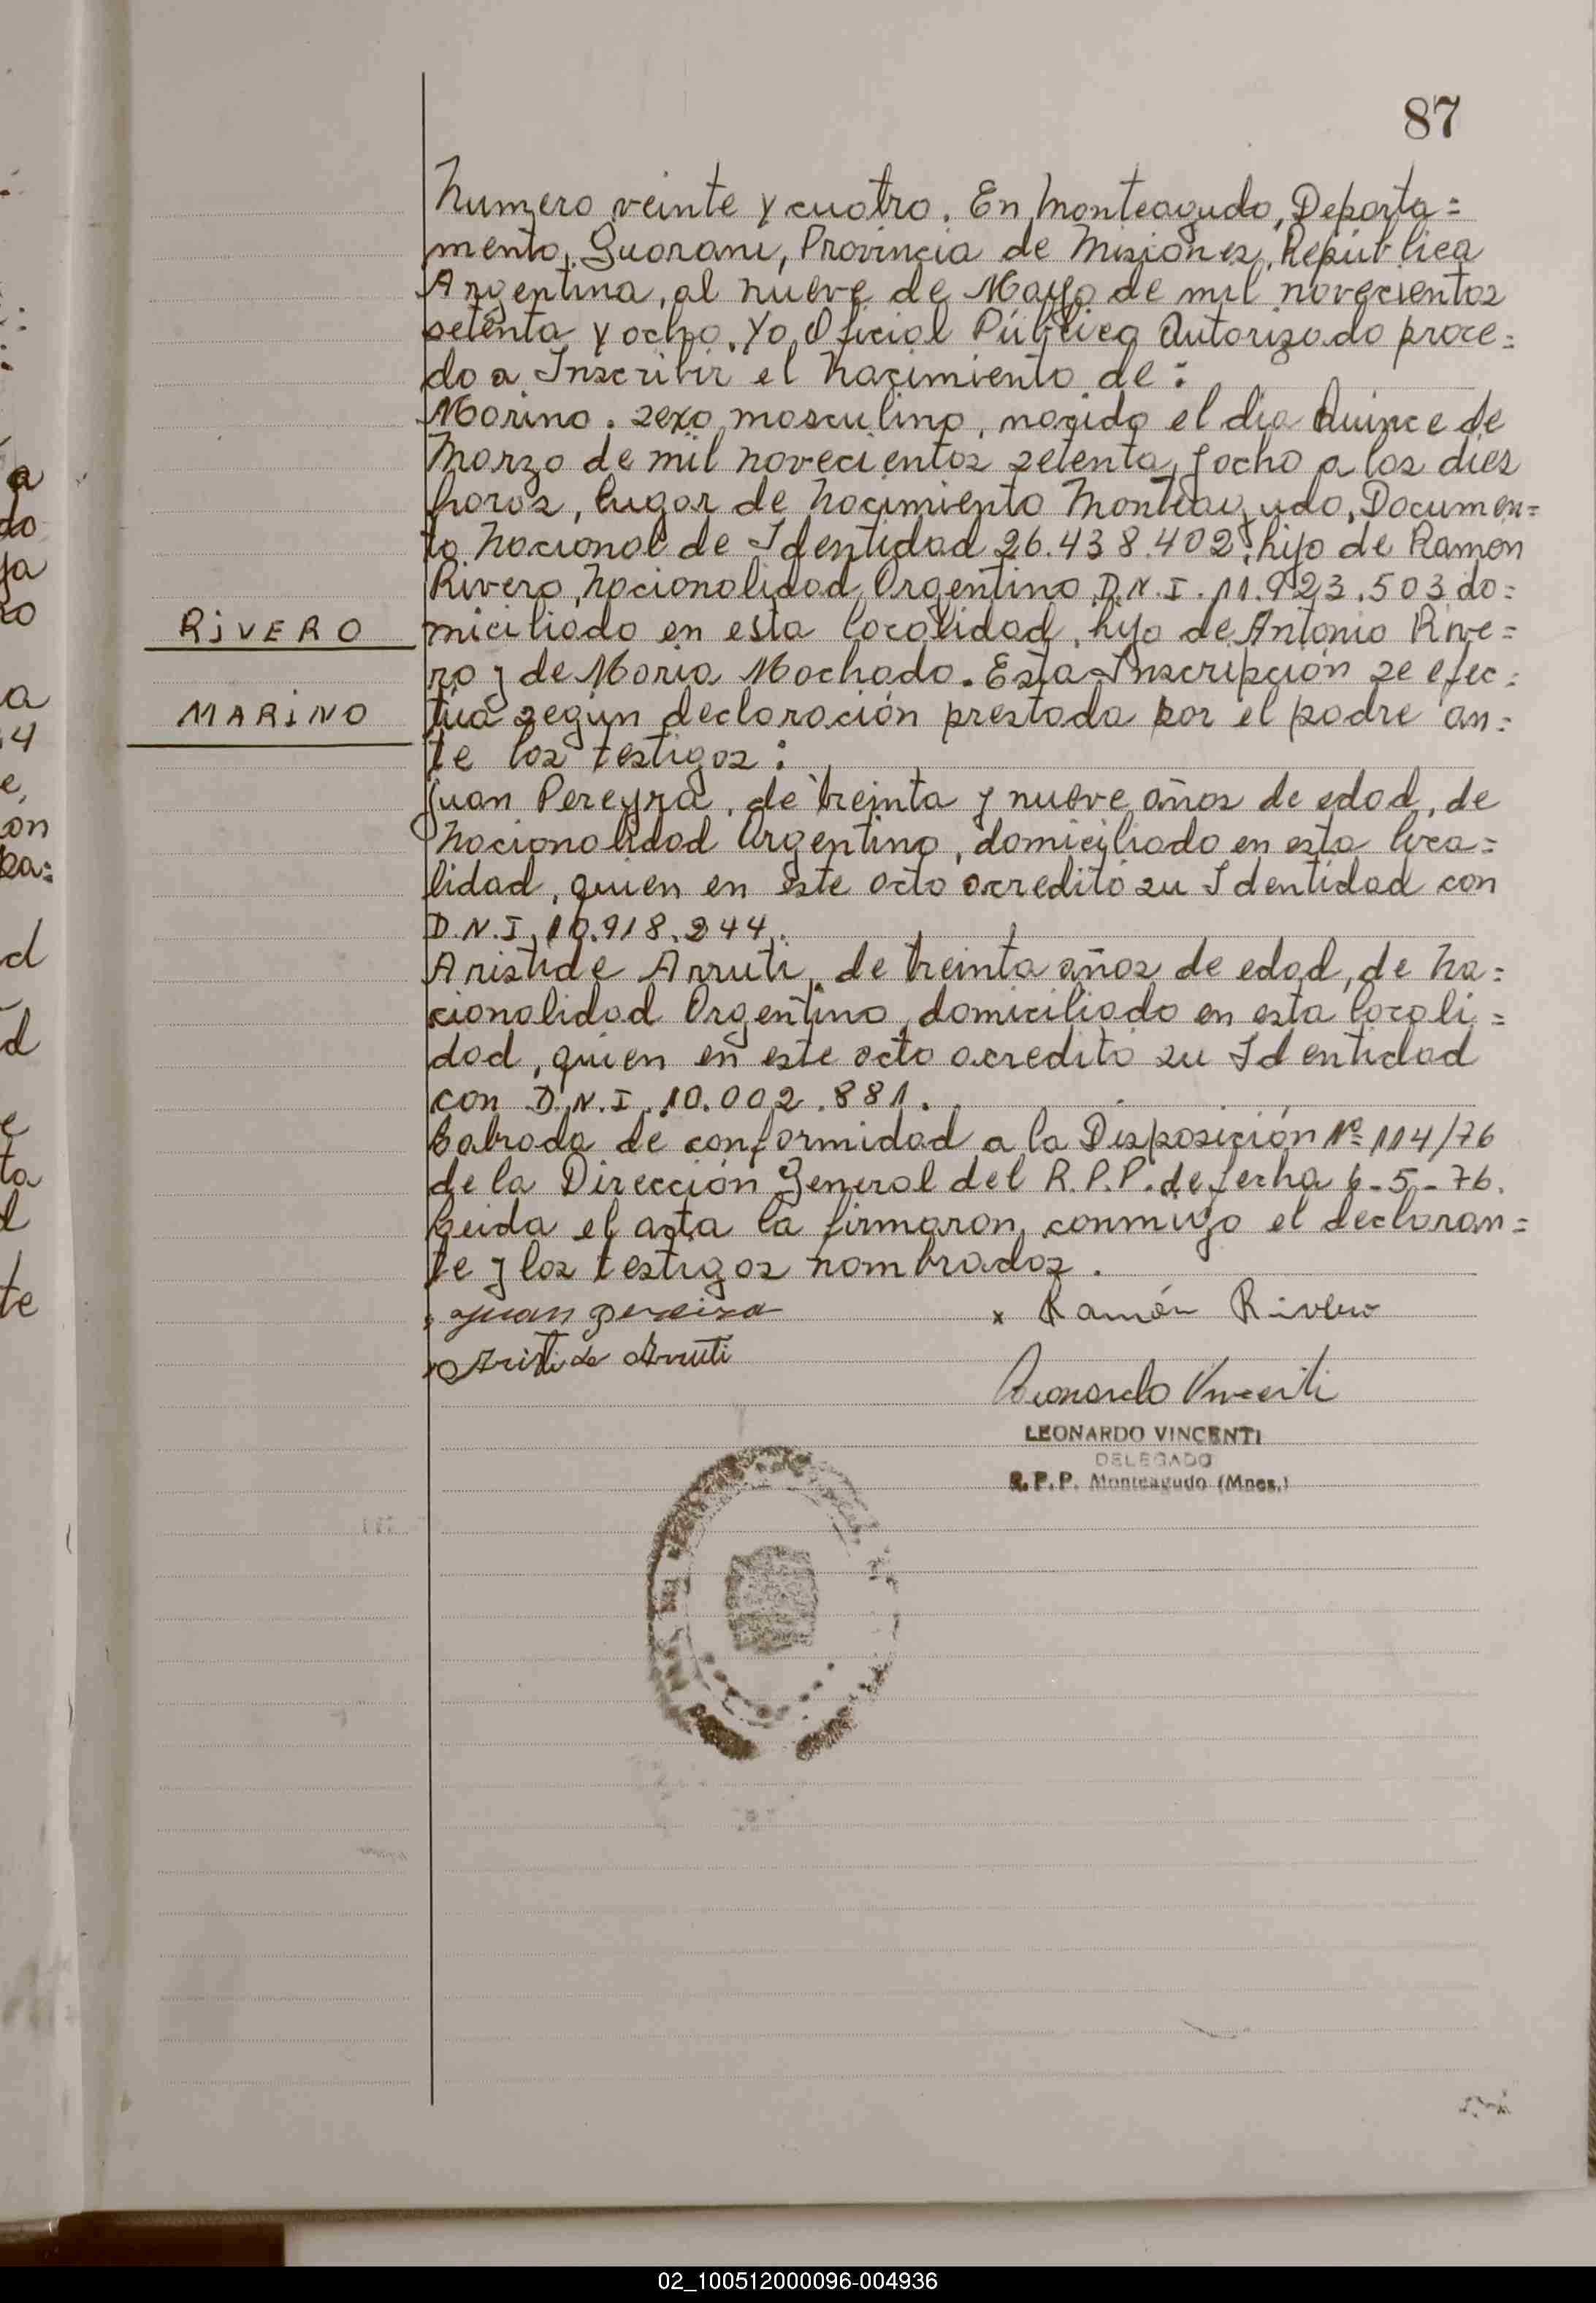 87
Numero veinte y cuatro. En Monteagudo, Departa=
mento, Guarani, Provincia de Misiones, República
Argentina, al nueve de Mayo de mil novecientos
setenta y ocho. Yo, Oficial Público Autorizado proce=
do a Inscribir el Nacimiento de:
Marino. sexo masculino, nacido el dia Quince de
Marzo de mil novecientos setenta y ocho a las dies
horas, lugar de Nacimiento Monteagudo, Documen=
to Nacional de Identidad 26.438.402, hijo de Ramon
Rivero, Nacionalidad Argentino D.N.I. 11.923.503 do=
RiVERO
miciliado en esta localidad, hijo de Antonio Rive=
ro y de Maria Machado. Esta Inscripción se efec=
MARiNO
túa según declaración prestada por el padre an=
te los testigos:
Juan Pereyra, de treinta y nueve años de edad, de
Nacionalidad Argentino, domiciliado en esta loca=
lidad, quien en este acto acreditó su Identidad con
D.N.I. 10.918.244.
Aristide Arruti, de treinta años de edad, de Na=
cionalidad Argentino, domiciliado en esta locali=
dad, quien en este acto acreditó su Identidad
con D.N.I. 10.002.881.
Labrada de conformidad a la Disposición Nº 114/76
de la Dirección General del R.P.P. de fecha 6-5-76.
Leida el acta la firmaron, conmigo el declaran=
te y los testigos nombrados.
Juan Pereira
x Ramón Rivero
Aristide Arruti
Leonardo Vincenti
LEONARDO VINCENTI
DELEGADO
R.P.P. Monteagudo (Mnes.)
02_100512000096-004936